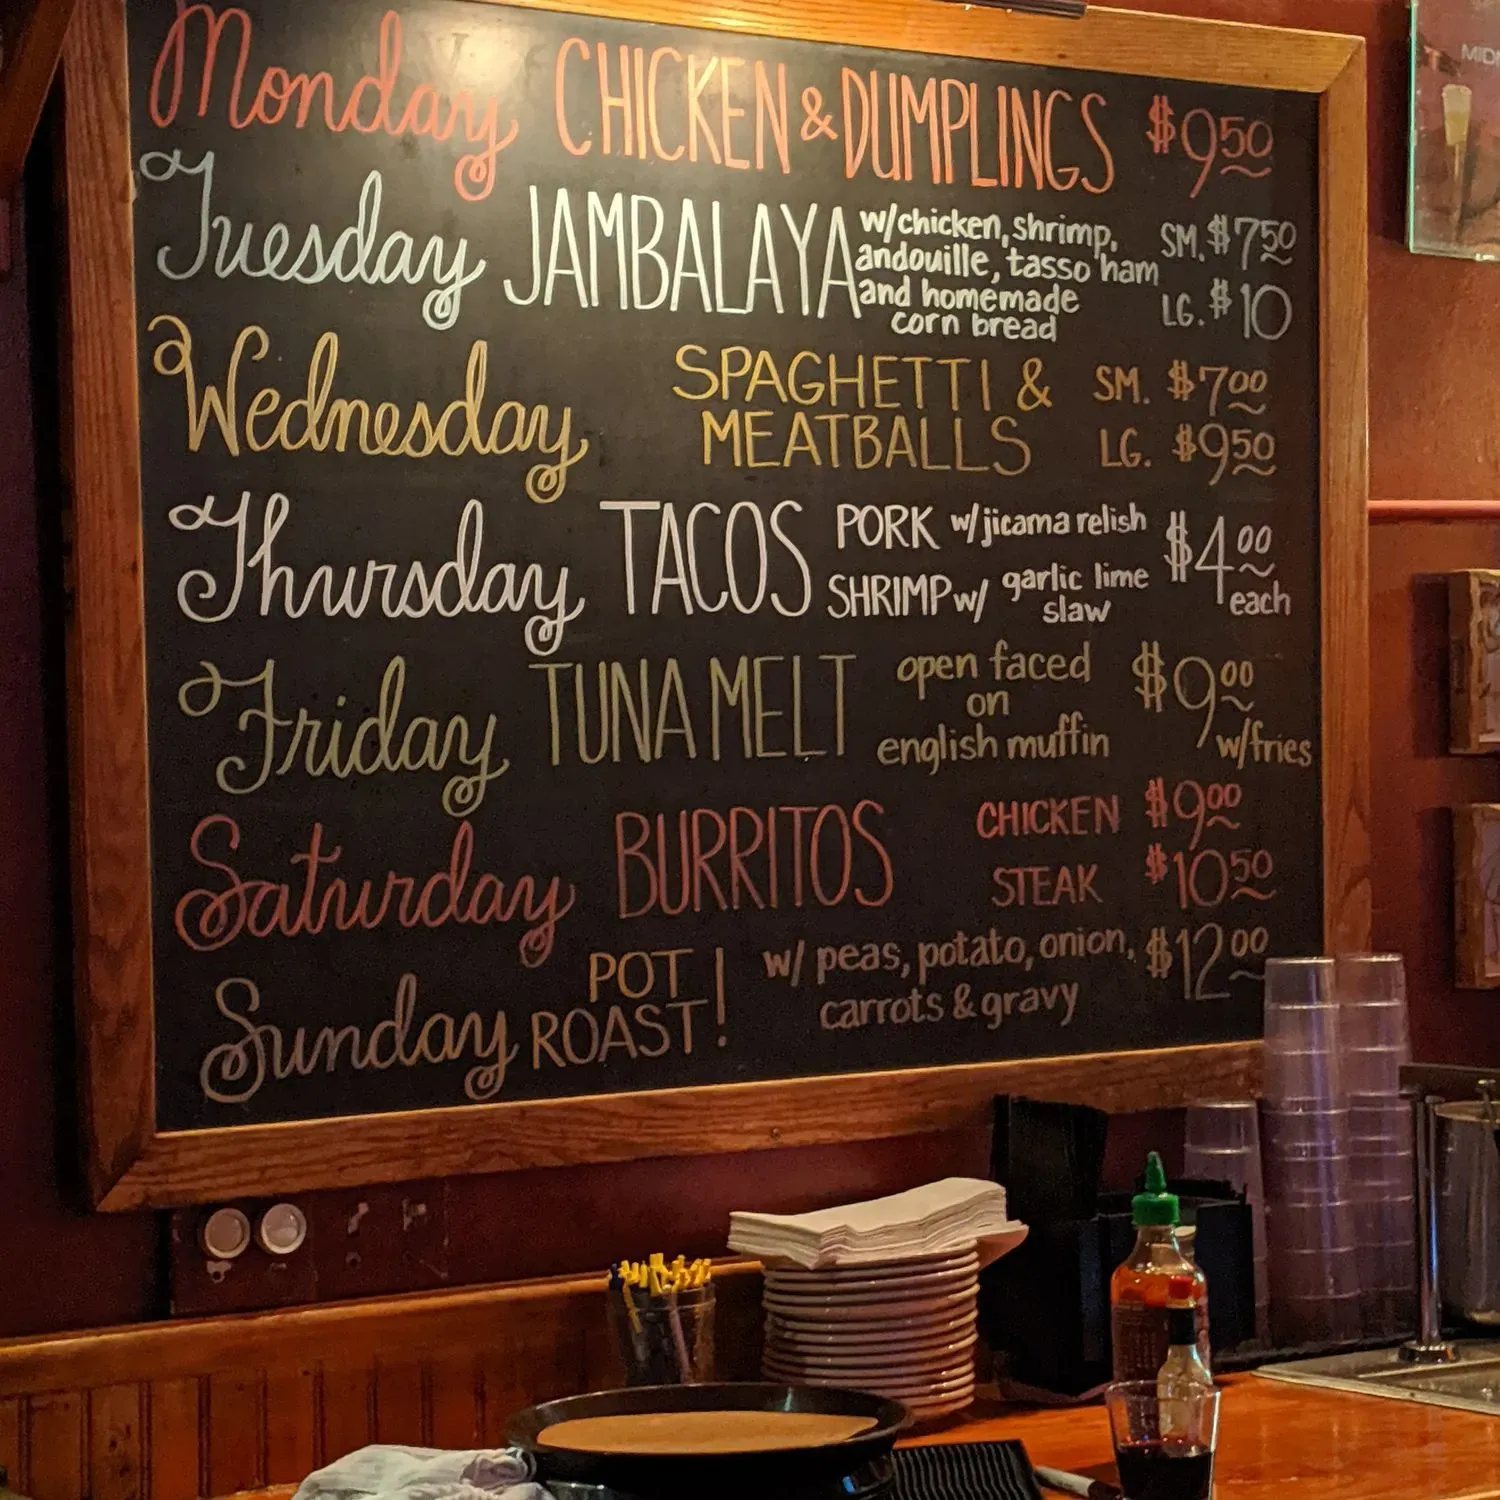 Monday CHICKEN & DUMPLINGS $9.50
Tuesday JAMBALAYA w/chicken, shrimp, andouille, tasso ham and homemade corn bread
SM. $7.50
LG. $10
Wednesday SPAGHETTI & MEATBALLS
SM. $7.00
LG. $9.50
Thursday TACOS
PORK w/jicama relish
SHRIMP w/ garlic lime slaw
$4.00 each
Friday TUNA MELT
open faced
on
english muffin
$9.00
w/fries
Saturday BURRITOS
CHICKEN $9.00
STEAK $10.50
Sunday POT ROAST!
w/ peas, potato, onion,
carrots & gravy
$12.00